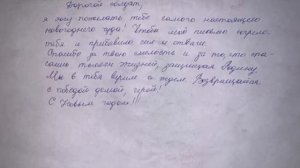 Дорогой солдат,
я хочу пожелать тебе самого настоящего
новогоднего чуда! Чтобы моё письмо согрело
тебя и прибавило сил и отваги.
Спасибо за твою смелость и за то, что спа-
саешь тысячи жизней, защищая Родину.
Мы в тебя верим и ждём. Возвращайся
с победой домой, герой!
С Новым годом!!!